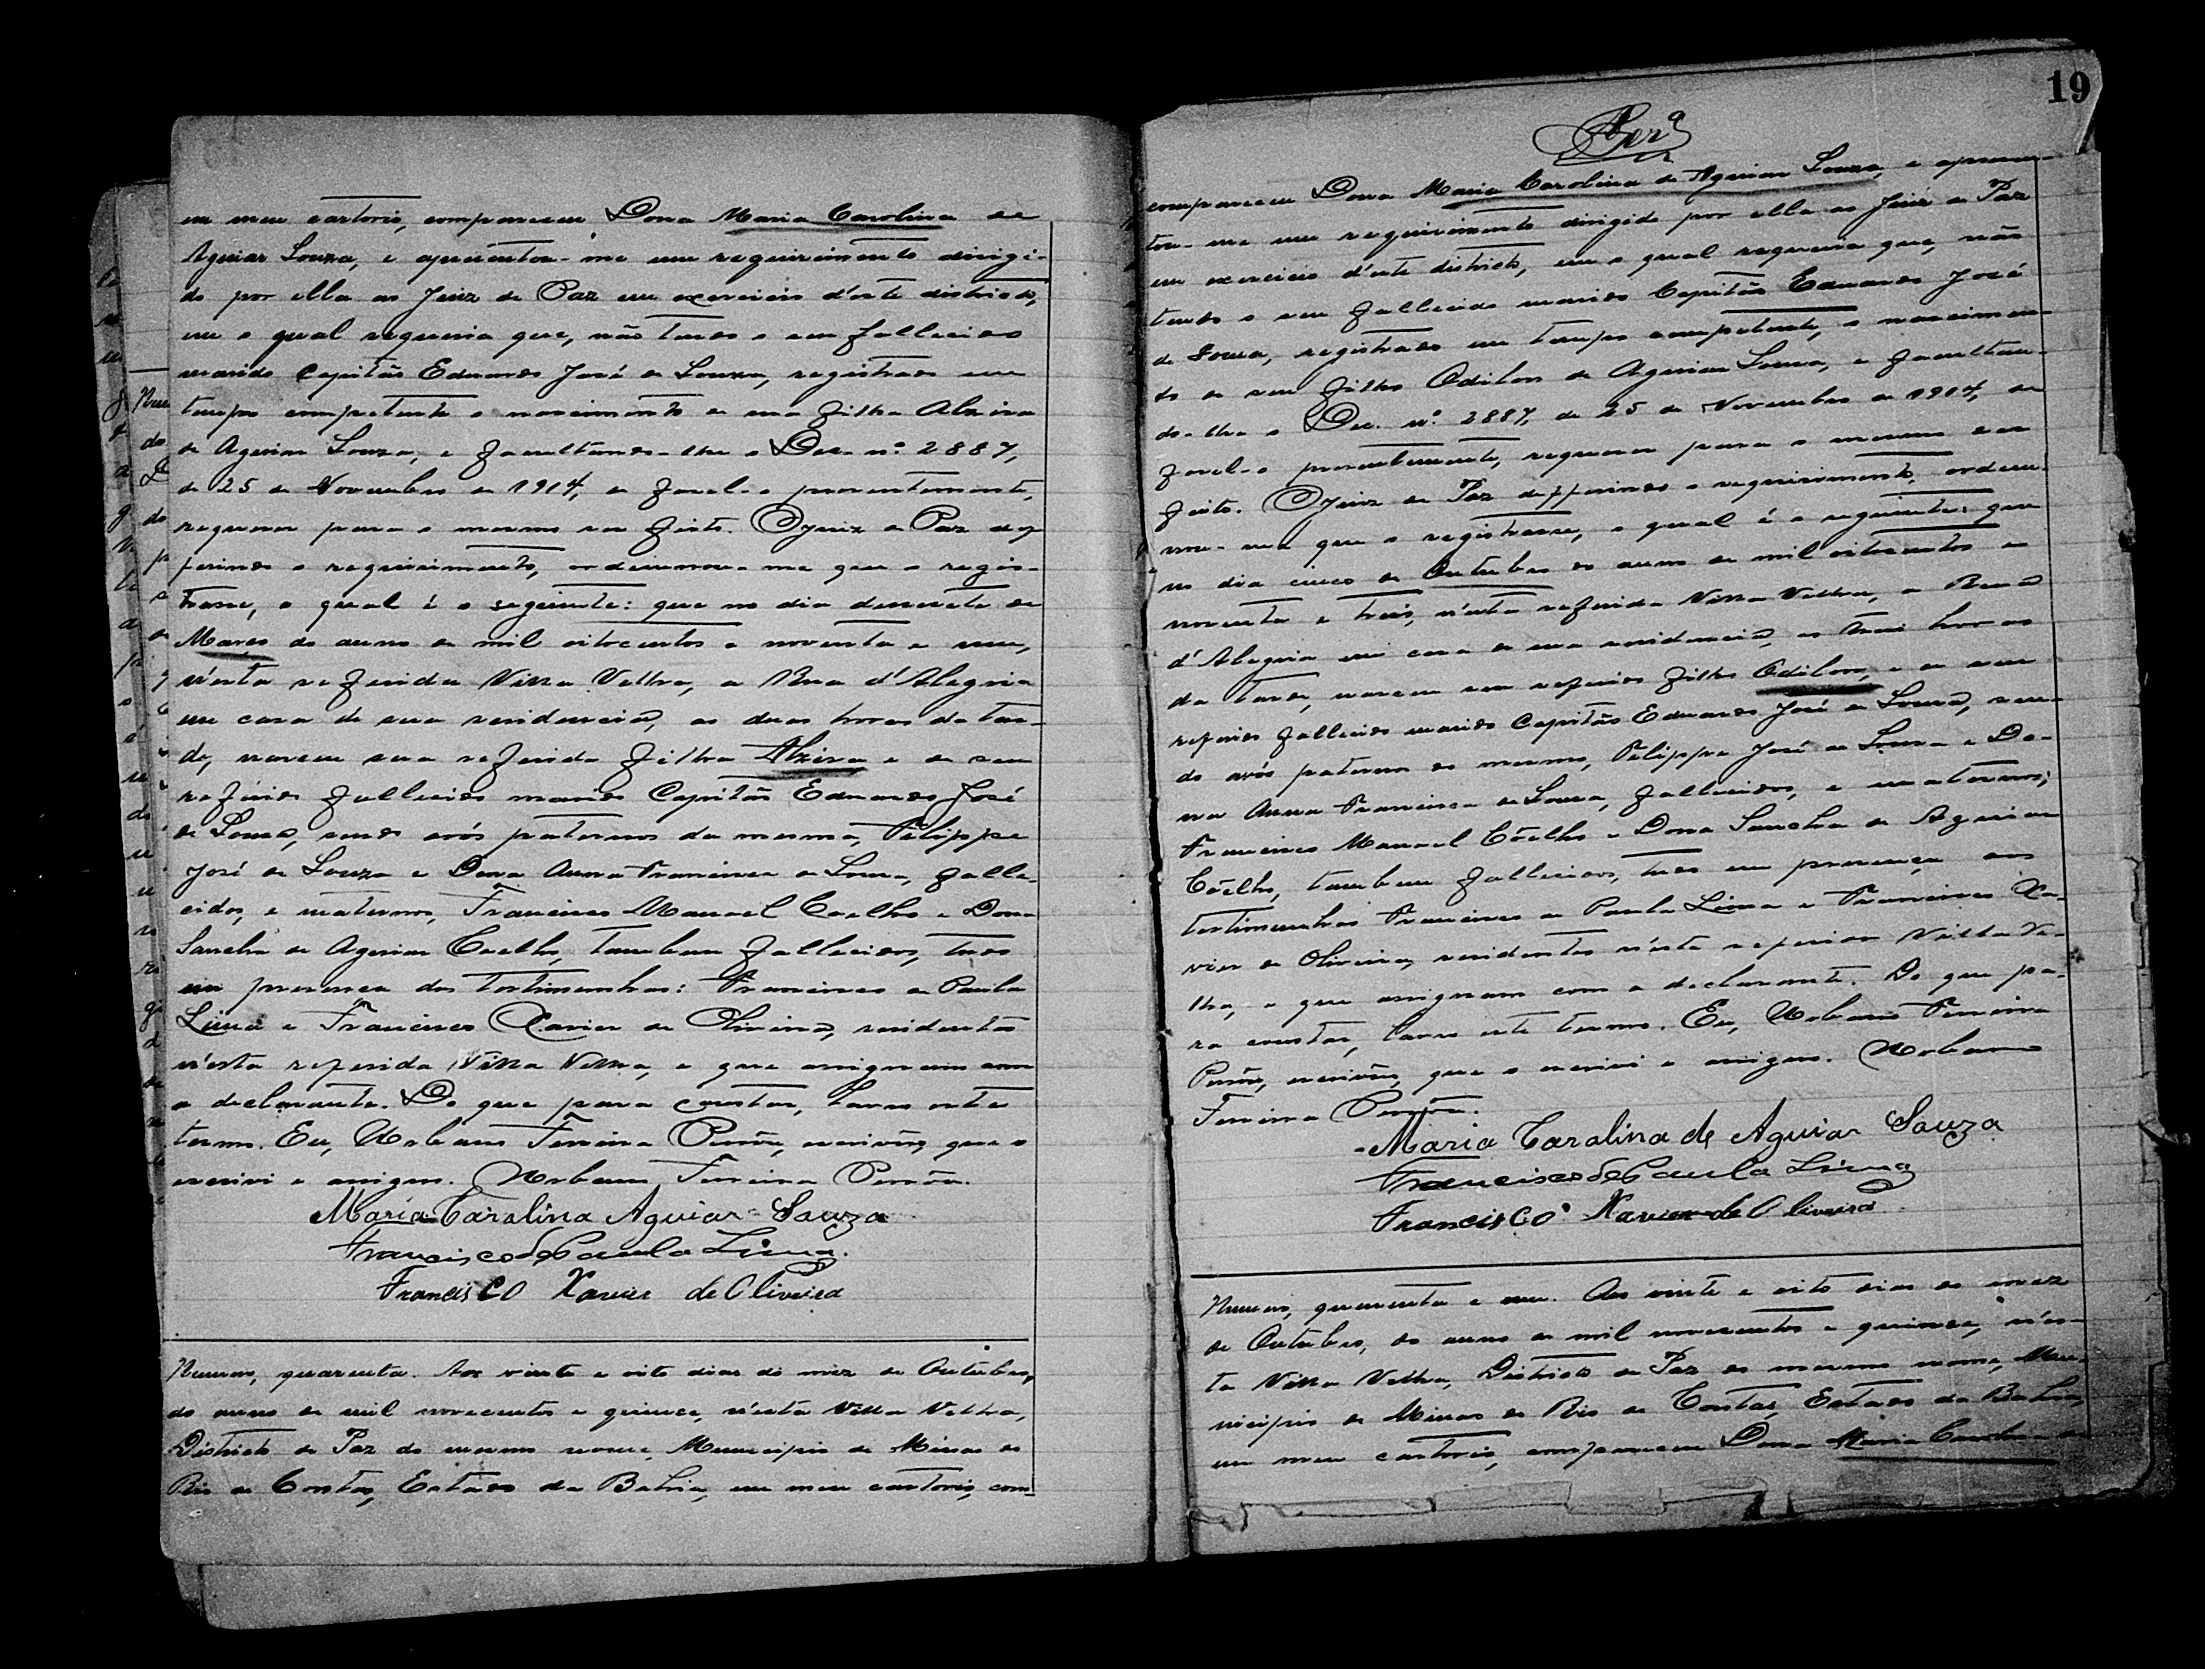 em meu cartorio, compareceu Dona Maria Carolina de
Aguiar Souza, e apresentou-me um requerimento dirigi-
do por ella ao Juiz de Paz em exercicio d'este districto,
em o qual requeria que, não tendo o seu fallecido
marido Capitão Eduardo José de Souza, registrado em
tempo competente o nascimento de sua filha Alzira
de Aguiar Souza, e facultando-lhe o Dec. nº 2887,
de 25 de Novembro de 1914, de fazel-o presentemente,
requerer para o mesmo ser feito. O Juiz de Paz def
ferindo o requerimento, ordennou-me que o regis-
trasse, o qual é o seguinte: que no dia desesete de
Março do anno de mil oitocentos e noventa e um,
n'esta referida Villa Velha, a Rua d'Alegria
em casa de sua residencia, as duas horas da tar-
de, nasceu sua referida filha Alzira e de seu
referido fallecido marido Capitão Eduardo José
de Souza, sendo avós paternos da mesma, Felippe
José de Souza e Dona Anna Francisca de Souza, falle-
cidos, e maternos, Francisco Manoel Coelho e Dona
Sancha de Aguiar Coelho, tambem fallecidos, tudo
em presença das testimunhas: Francisco de Paula
Lima e Francisco Xavier de Oliveira, residentes
n'esta referida Villa Velha, e que assignam com
a declarante. Do que para constar, lavro este
termo. Eu, Urbano Ferreira , escrivão, que o
escrivi e assigno. Urbano Ferreira
Maria Carolina Aguiar Souza
Francisco de Paula Lima.
Francisco Xavier de Oliveira
Numero, quarenta. Aos vinte e oito dias do mez de Outubro,
do anno de mil novecentos e quinze, n'esta Villa Velha,
Districto de Paz do mesmo nome, Municipio de Minas do
Rio de Contas, Estado da Bahia, em meu cartorio, com
19
compareceu Dona Maria Carolina de Aguiar Souza, e apresen-
tou-me um requerimento dirigido por ella ao Juiz de Paz
em exercicio d'este districto, em o qual requeria que, não
tendo o seu fallecido marido Capitão Eduardo José
de Souza, registrado em tempo competente, o nascimen-
to de seu filho Odilon de Aguiar Souza, e facultan-
do-lhe o Dec. nº 2887, de 25 de Novembro de 1914, de
fazel-o presentemente, requerer para o mesmo ser
feito. O Juiz de Paz defferindo o requerimento, orden-
nou-me que o registrasse, o qual é o seguinte: que
no dia cinco de Outubro do anno de mil oitocentos e
noventa e três, n'esta referida Villa Velha, a Rua
d'Alegria em casa de sua residencia, as tres horas
da tarde, nasceu seu referido filho Odilon, e de seu
referido fallecido marido Capitão Eduardo José de Souza, sen-
do avós paternos do mesmo, Felippe José de Souza e Do-
na Anna Francisca de Souza, fallecidos, e maternos,
Francisco Manoel Côelho e Dona Sancha de Aguiar
Côelho, tambem fallecidos, tudo em presença das
testimunhas Francisco de Paula Lima e Francisco Xa-
vier de Oliveira, residentes n'esta referida Villa Ve-
lha, e que assignam com a declarante. Do que pa-
ra constar, lavro este termo. Eu, Urbano Ferreira
escrivão, que o escrivi e assigno. Urbano
Ferreira
Maria Carolina de Aguiar Souza
Francisco de Paula Lima
Francisco Xavier de Oliveira
Numero, quarenta e um. Aos vinte e oito dias do mez
de Outubro, do anno de mil novecentos e quinze, n'es-
ta Villa Velha, Districto de Paz do mesmo nome, Mu-
nicipio de Minas do Rio de Contas, Estado da Bahia,
em meu cartorio, compareceu Dona Maria Carolina de